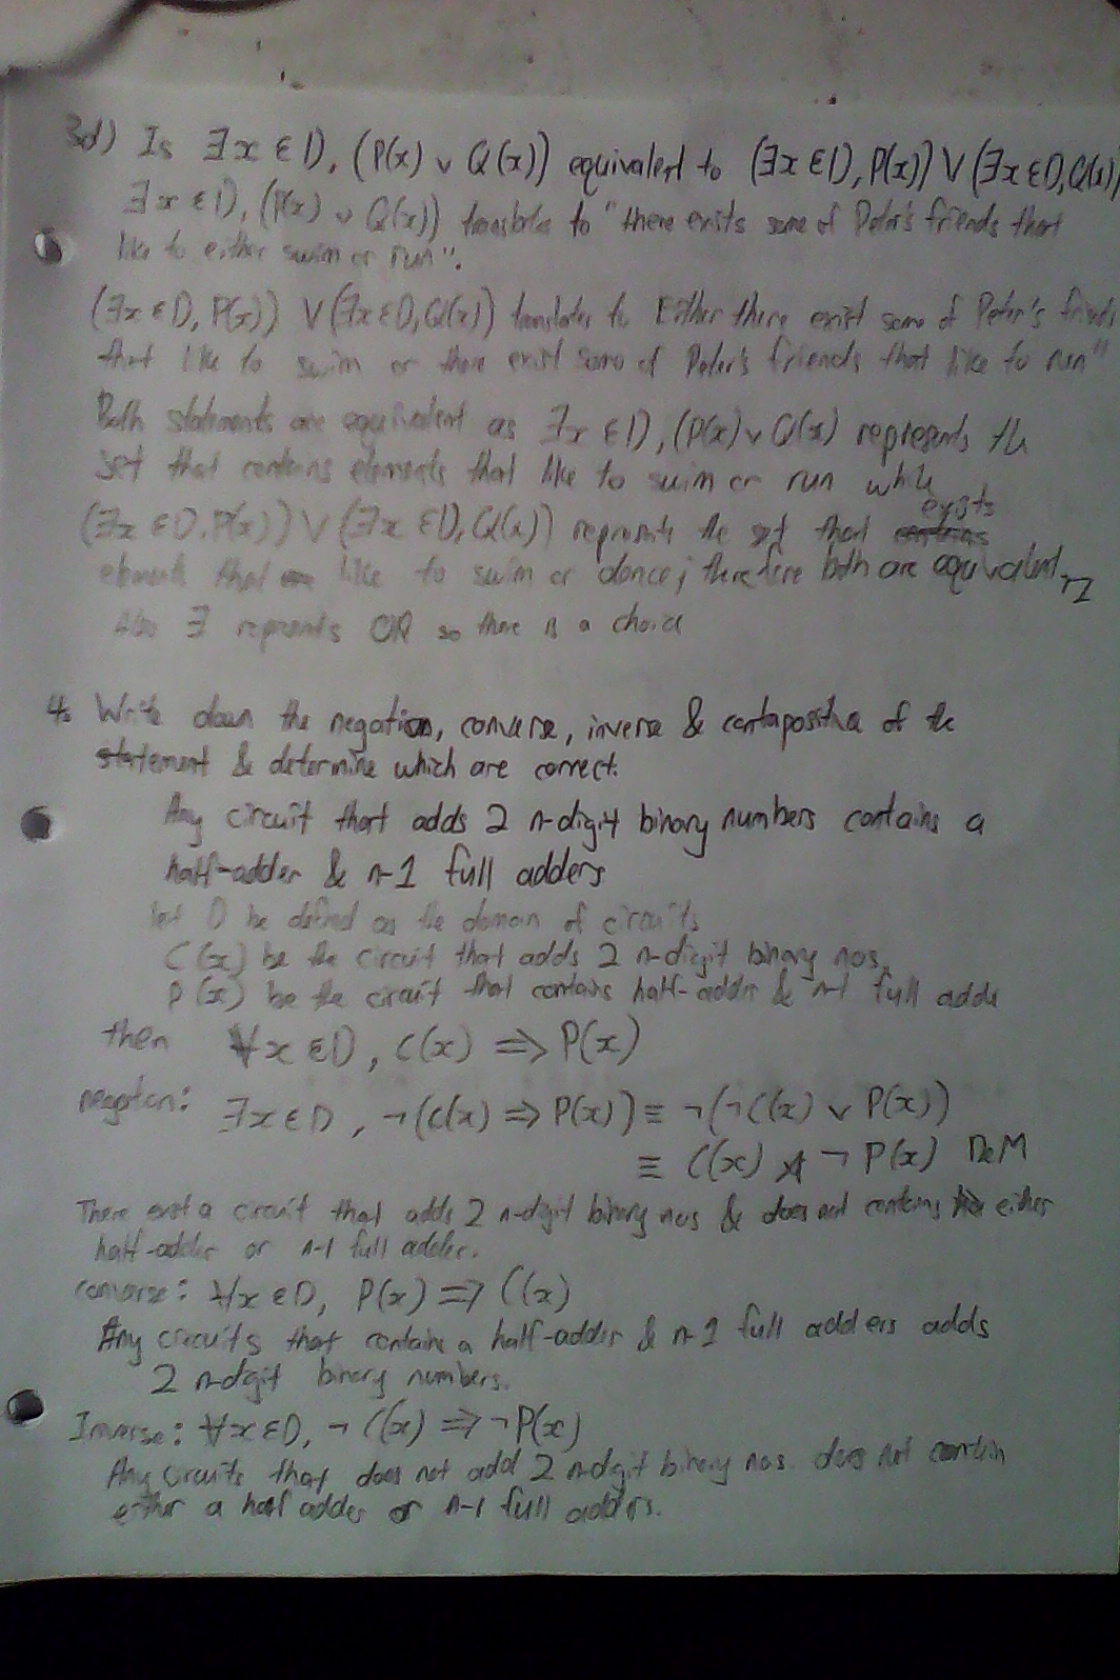 3d) Is ∃x ∈ D, (P(x) ∨ Q(x)) equivalent to (∃x ∈ D, P(x)) ∨ (∃x ∈ D, Q(x)
∃x ∈ D, (P(x) ∨ Q(x)) translates to "there exists some of Peter's friends that
like to either swim or run".
(∃x ∈ D, P(x)) ∨ (∃x ∈ D, Q(x)) translates to Either there exist some of Peter's friends
that like to swim or there exist some of Peter's friends that like to run"
Both statements are equivalent as ∃x ∈ D, (P(x) ∨ Q(x) represents the
set that contains elements that like to swim or run while
(∃x ∈ D, P(x)) ∨ (∃x ∈ D, Q(x)) represents the set that exists
elements that like to swim or dance; therefore both are equivalent.
Also ∃ represents OR so there is a choice
4. Write down the negation, converse, inverse & contapositive of the
statement & determine which are correct.
Any circuit that adds 2 n-digit binary numbers contains a
half-adder & n-1 full adders
let D be defined as the domain of circuits
C(x) be the circuit that adds 2 n-digit binary nos.
P(x) be the circuit that contains half-adder & n-1 full adde
then ∀x ∈ D, C(x) ⇒ P(x)
negation: ∃x ∈ D, ¬(C(x) ⇒ P(x)) ≡ ¬(¬C(x) ∨ P(x))
≡ C(x) ∧ ¬ P(x) DeM
There exist a circuit that adds 2 n-digit binary nos & does not contains either
half-adder or n-1 full adder.
converse: ∀x ∈ D, P(x) ⇒ C(x)
Any circuits that contains a half-adder & n-1 full adders adds
2 n-digit binary numbers.
Inverse: ∀x ∈ D, ¬ C(x) ⇒ ¬P(x)
Any circuits that does not add 2 n-digit binary nos. does not contain
either a half adder or n-1 full adders.